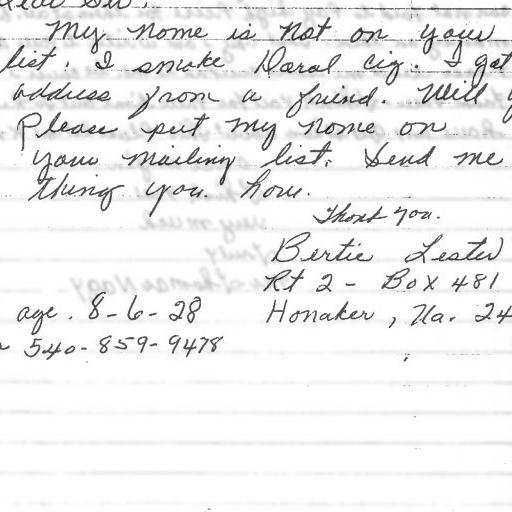 Dear Sir,
My name is not on your
list. I smoke Doral cig. I got
address from a friend. Will
Please put my name on
your mailing list. Send me
thing you have.
Thank you.
Bertie Lester
Rt 2 - Box 481
age. 8-6-28 Honaker, Va. 24
540-859-9478